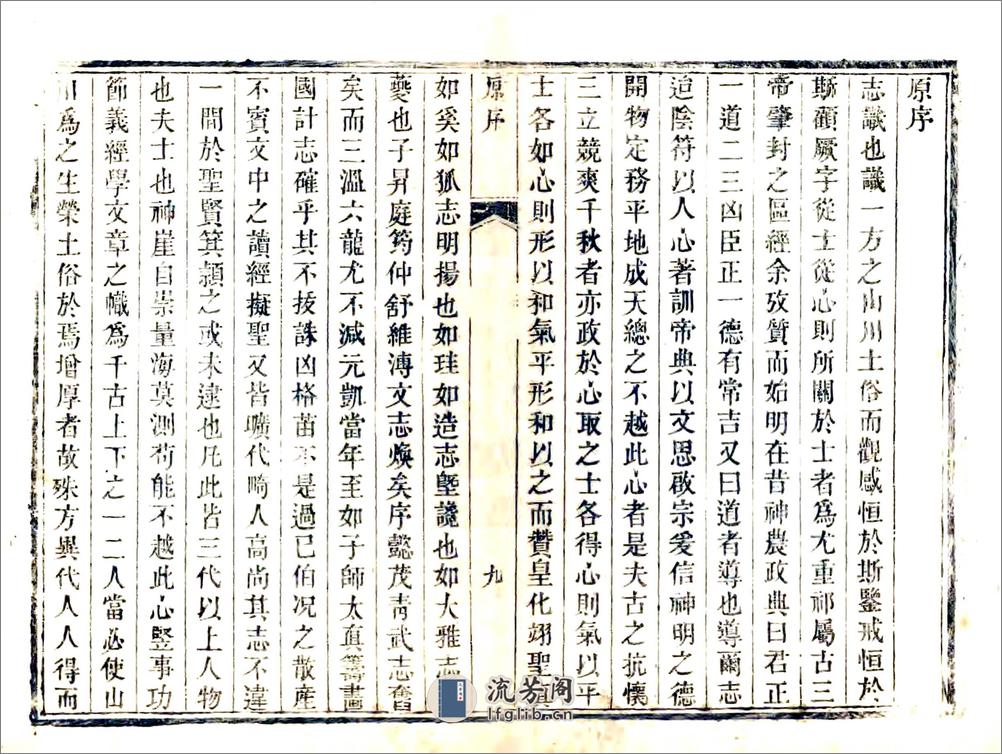 原序
志識也識一方之山川土俗而觀感恒於斯鑒戒恒於
斯顧厥字從士從心則所關於士者為尤重祁屬古三
帝肇封之區經余攷質而始明在昔神農政典曰君正
一道二三凶臣正一德有常吉又曰道者導也導爾志
迨陰符以人心著訓帝典以文思啟宗爰信神明之德
開物定務平地成天總之不越此心者是夫古之抗懷
三立競爽千秋者亦政於心取之士各得心則氣以平
士各如心則形以和氣平形和以之而贊皇化翊聖道
原序
九
如奚如狐志明揚也如珪如造志墍讒也如大雅志
夔也子昇庭筠仲舒維漙文志煥矣序懿茂靑武志奮
矣而三溫六龍尤不減元凱當年至如子師太眞籌畫
國計志確乎其不拔誅凶格苗不是過已伯况之散産
不賓文中之讀經擬聖又皆曠代畸人高尚其志不違
一間於聖賢箕潁之或未逮也凡此皆三代以上人物
也夫士也神崖自崇量海莫測苟能不越此心豎事功
節義經學文章之幟為千古上下之一二人當必使山
川為之生榮土俗於焉增厚者故殊方異代人人得而
流芳阁
lfglib.cn